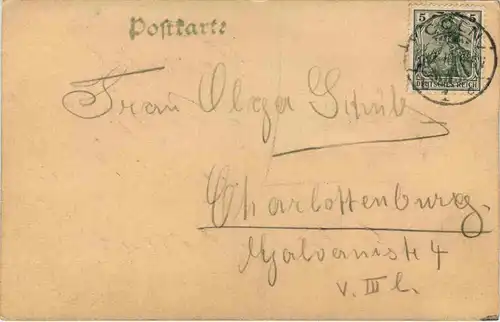 Postkarte
5 5
DEUTSCHES REICH
Frau Olga Schulz
Charlottenburg.
Galvanistr 4
v. III l.